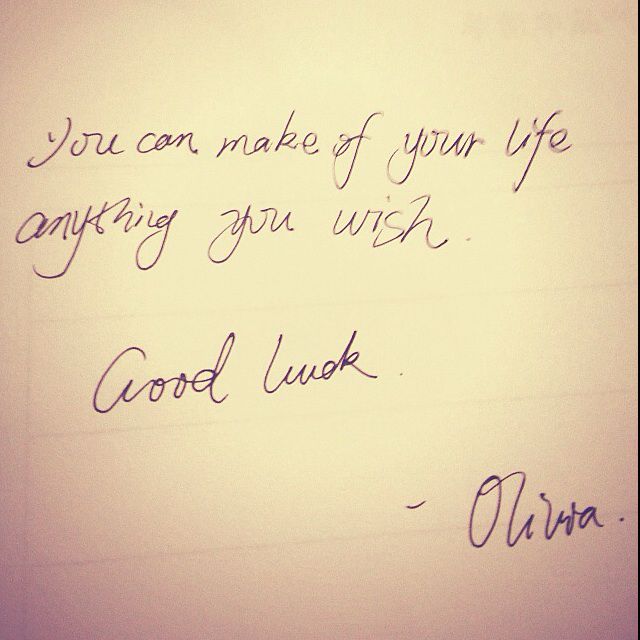 you can make of your life
anything you wish.
Good luck.
- Olivia.